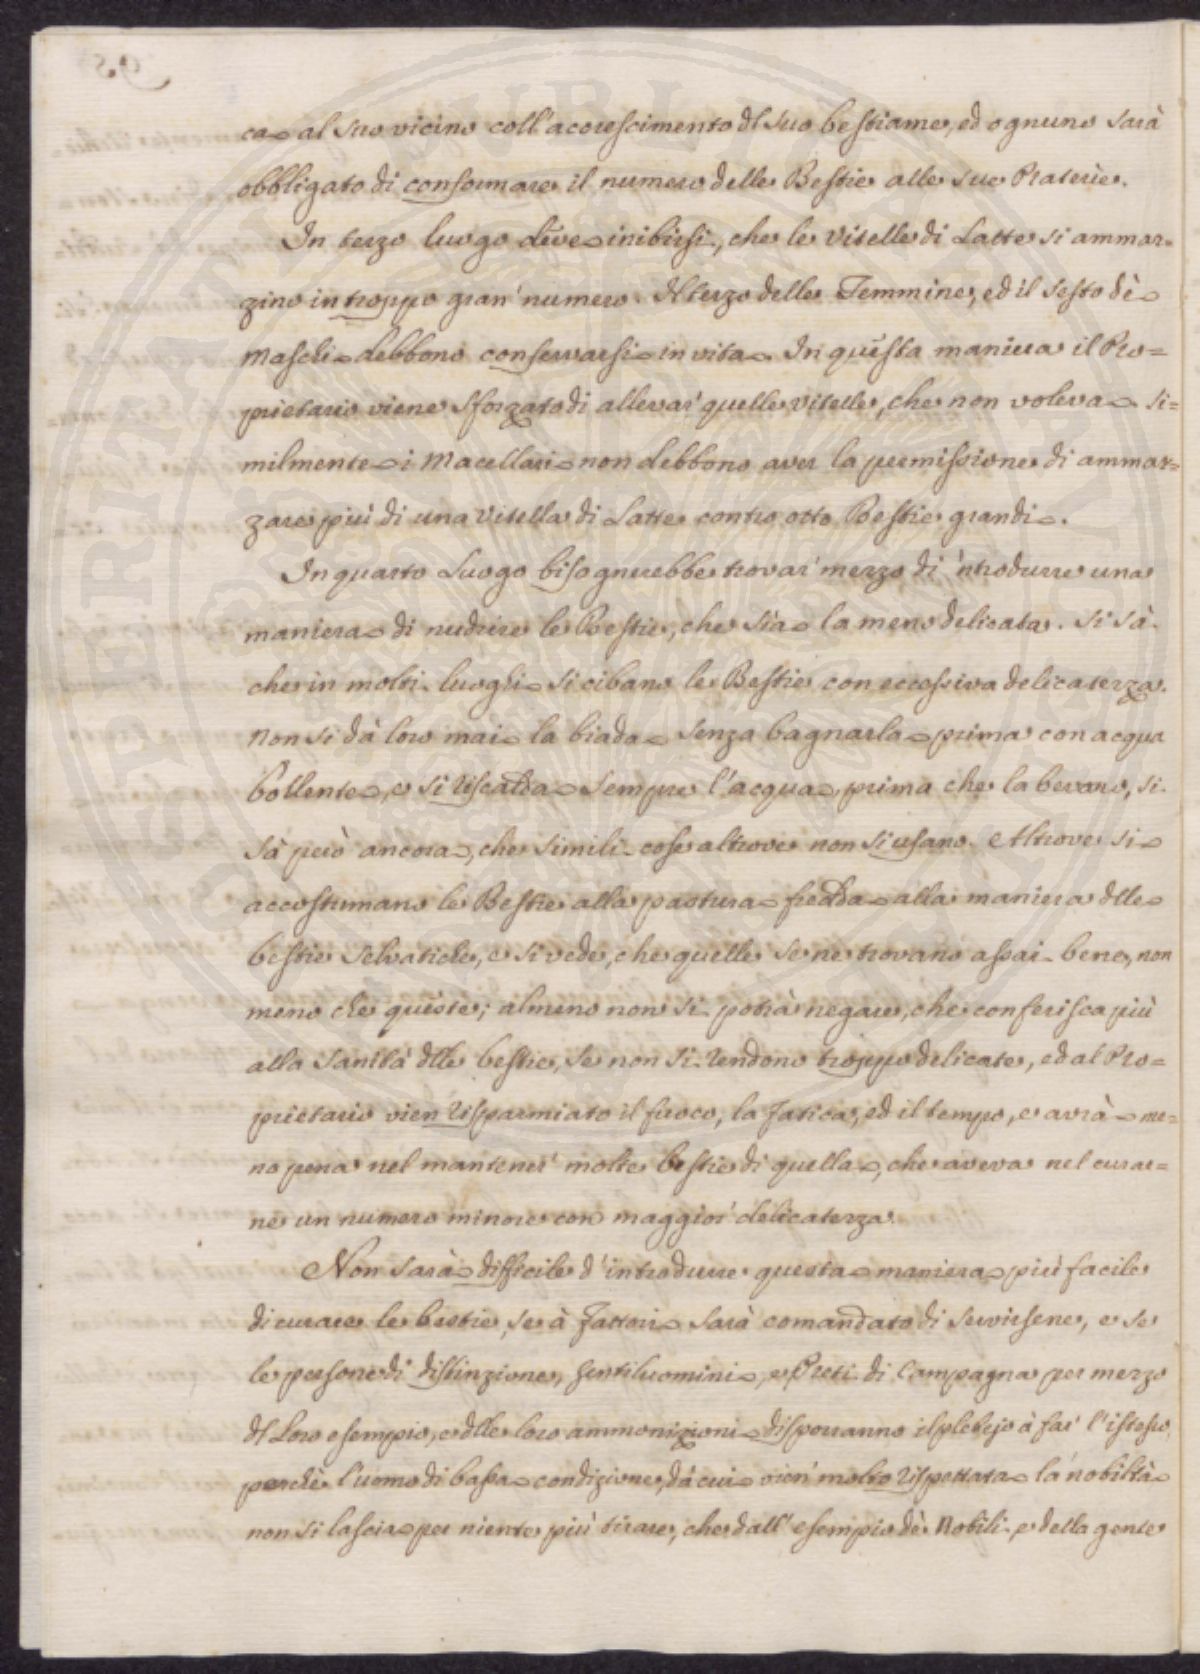 ca al suo vicino coll'acorescimento dl suo bestiame, ed ognuno sarà
obbligato di conformare il numero delle Bestie alle sue Praterie.
In terzo luogo deve inibirsi, che le Vitelle di Latte si ammaz=
zino in troppo gran' numero. Il terzo delle Femmine, ed il sesto dè
Maschi debbono conservarsi in vita. In questa maniera il Pro=
prietario viene sforzato di allevar' quelle vitelle, che non voleva. Si=
milmente i Macellari non debbono aver la permissione di ammaz=
zare più di una Vitella di Latte contro otto Bestie grandi.
In quarto Luogo bisognerebbe trovar' mezzo di 'ntrodurre una
maniera di nudrire le Bestie, che sìa la meno delicata. Si sà
che in molti luoghi si cibano le Bestie con eccessiva delicatezza.
Non si dà loro mai la biada senza bagnarla prima con acqua
bollente, e si riscalda sempre l'acqua, prima che la bevano, si
sà però ancora, che simili cose altrove non si usano. Altrove si
accostumano le Bestie alla pastura fredda alla maniera dlle
bestie selvatiche, e si vede, che quelle se ne trovano assai bene, non
meno che queste; almeno non si potrà negare, che conferisca più
alla sanità dlle bestie, se non si rendono troppo delicate, ed al Pro=
prietario vien risparmiato il fuoco, la fatica, ed il tempo, e avrà me=
no pena nel mantener' molte bestie di quella, che aveva nel curar=
ne un numero minore con maggior' delicatezza.
Non sarà difficile d'introdurre questa maniera più facile
di curare le bestie, se à Fattori sarà comandato di servirsene, e se
le persone di distinzione, gentiluomini, e Preti di Campagna per mezzo
dl Loro esempio, e dlle loro ammonizioni disporranno il plebejo à far' l'istesso,
perchè l'uomo di bassa condizione, dà cui vien' molto rispettata la nobiltà
non si lascia per niente più tirare, che dall' esempio dè Nobili e della gente